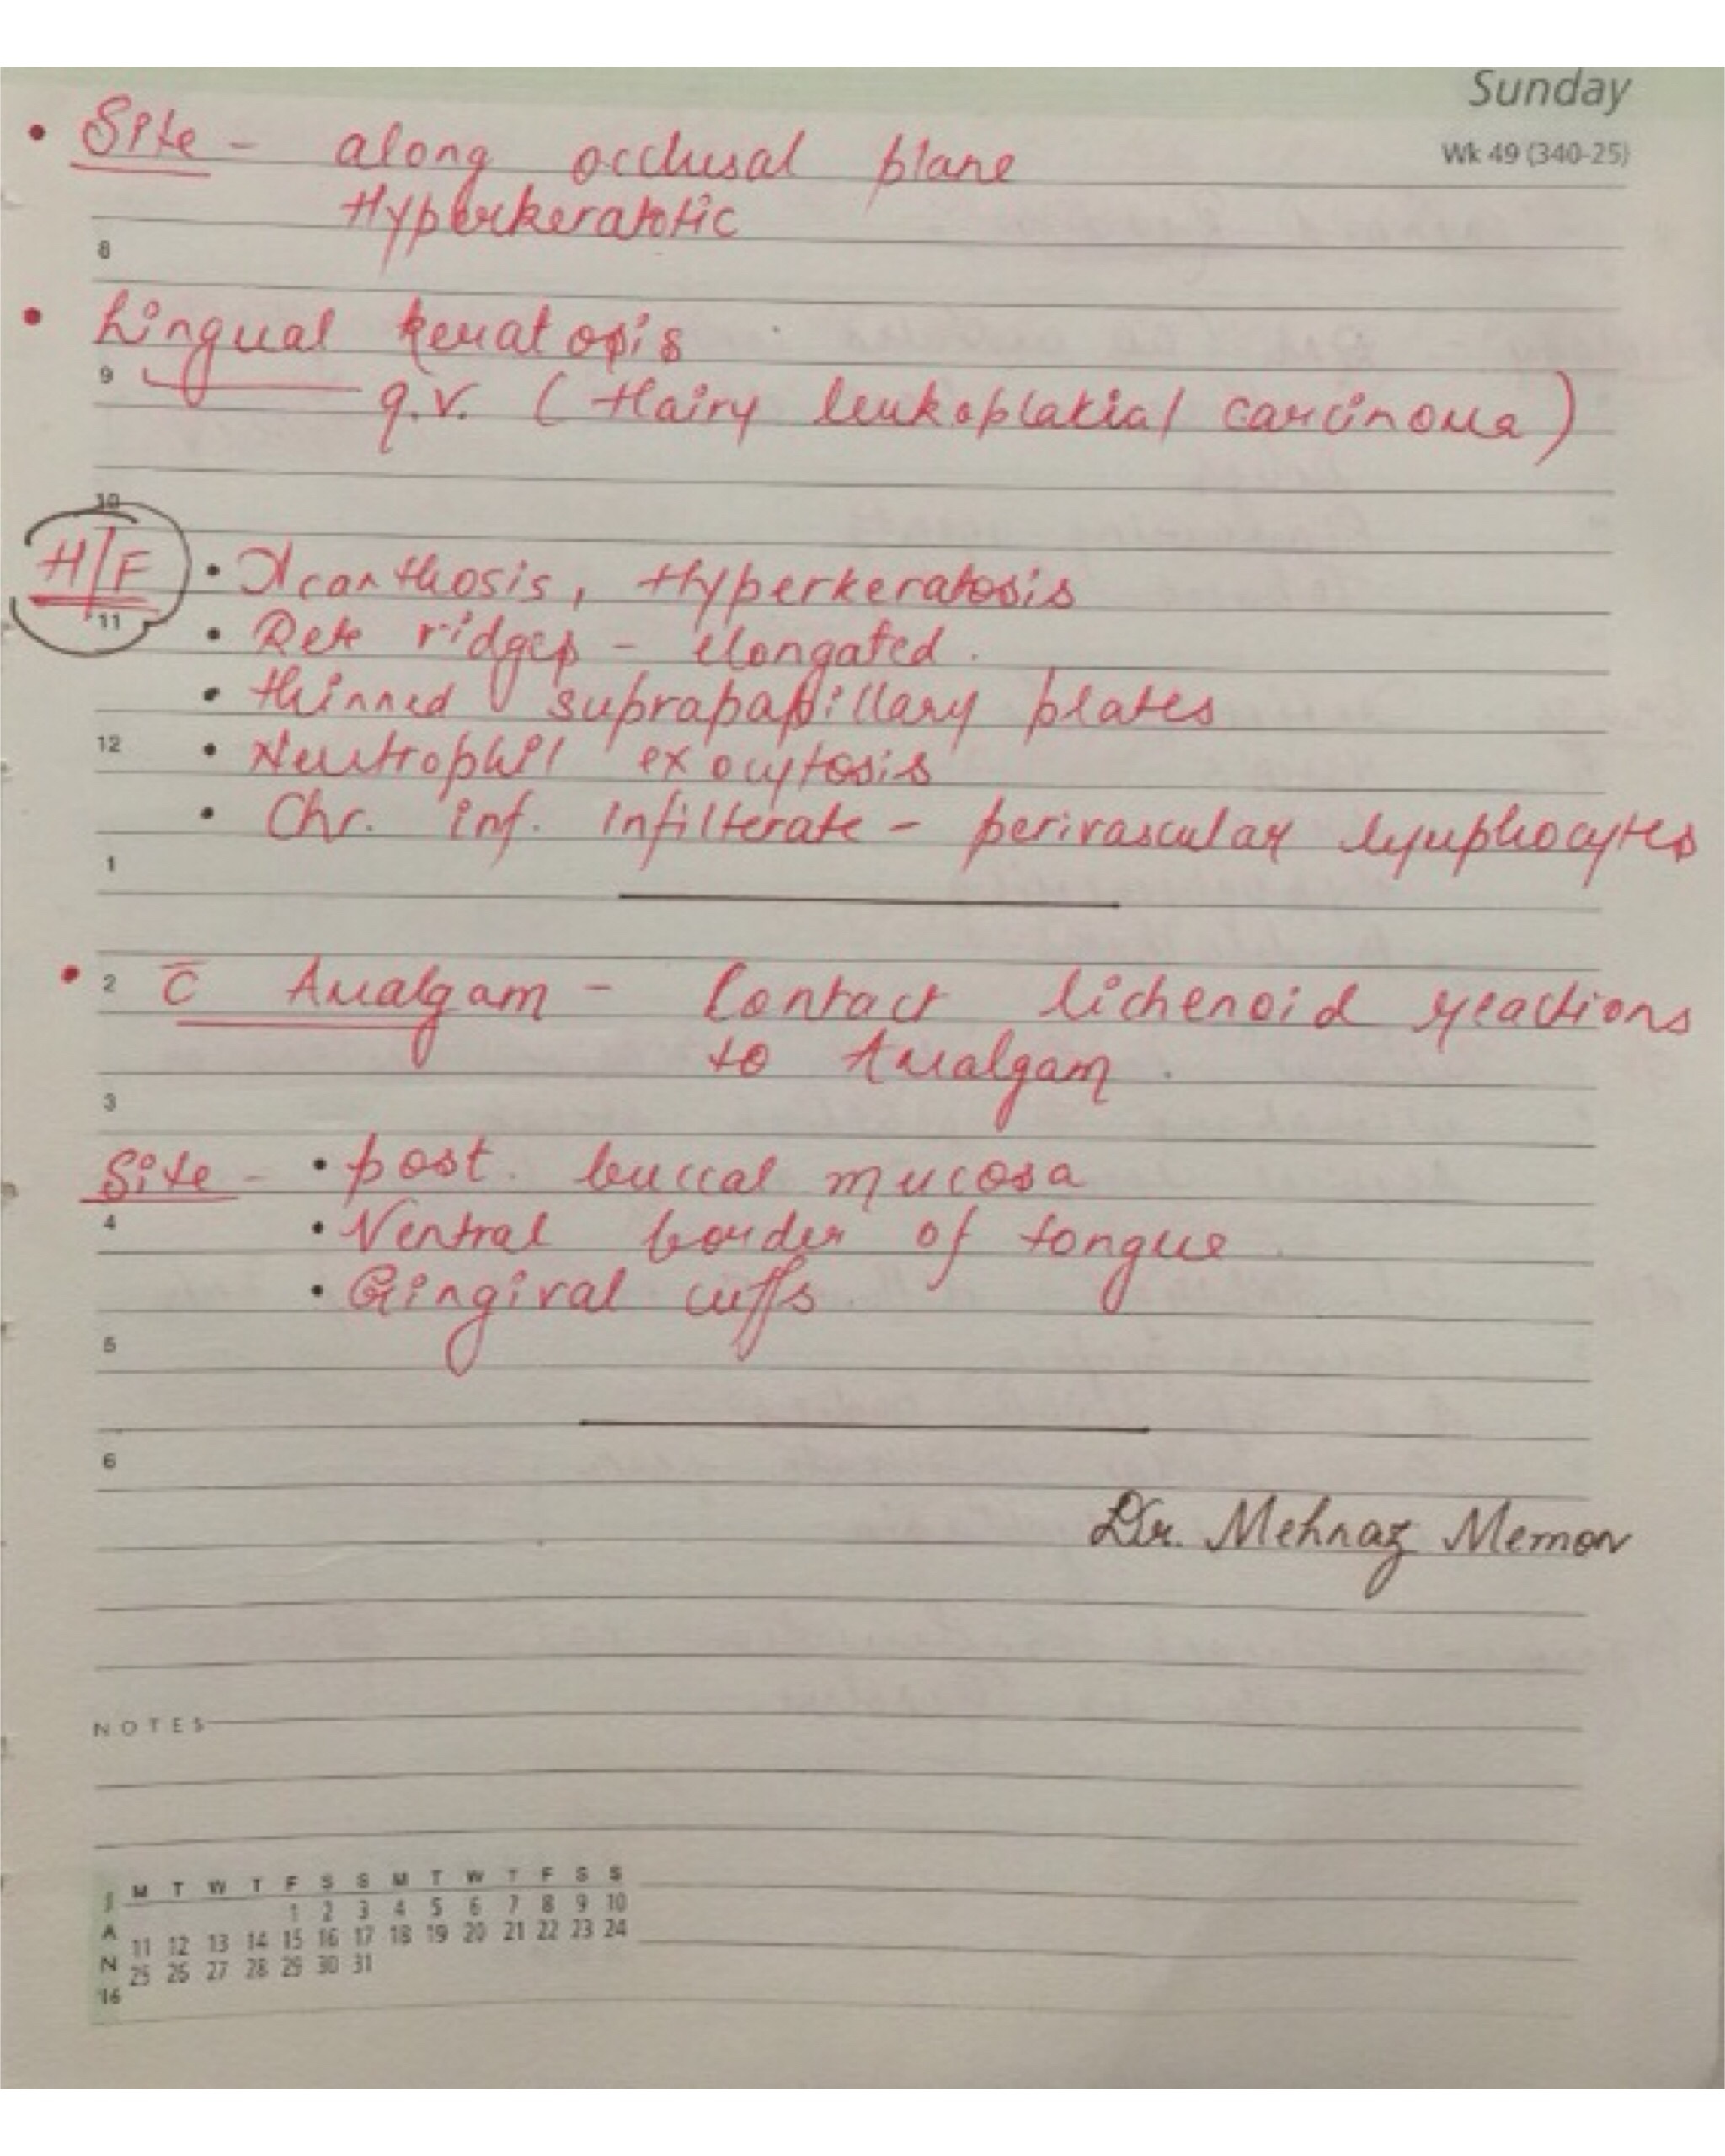 Sunday
Wk 49 (340-25)
• Site - along occlusal plane
Hyperkeratotic
8
• Lingual keratosis
9
q.v. (Hairy leukoplakia/ carcinoma)
10
H/F • Acanthosis, Hyperkeratosis
11
• Rete ridges - elongated.
• thinned suprapapillary plates
12
• Neutrophil exocytosis
• Chr. inf. infilterate - perivascular lymphocytes
1
• 2 c̄ Amalgam - Contact lichenoid reactions
to Amalgam.
3
Site - • post. buccal mucosa
4
• Ventral border of tongue.
• Gingival cuffs.
5
6
Dr. Mehnaz Memon
NOTES
M T W T F S S M T W T F S S
J 1 2 3 4 5 6 7 8 9 10
A 11 12 13 14 15 16 17 18 19 20 21 22 23 24
N 25 26 27 28 29 30 31
'16